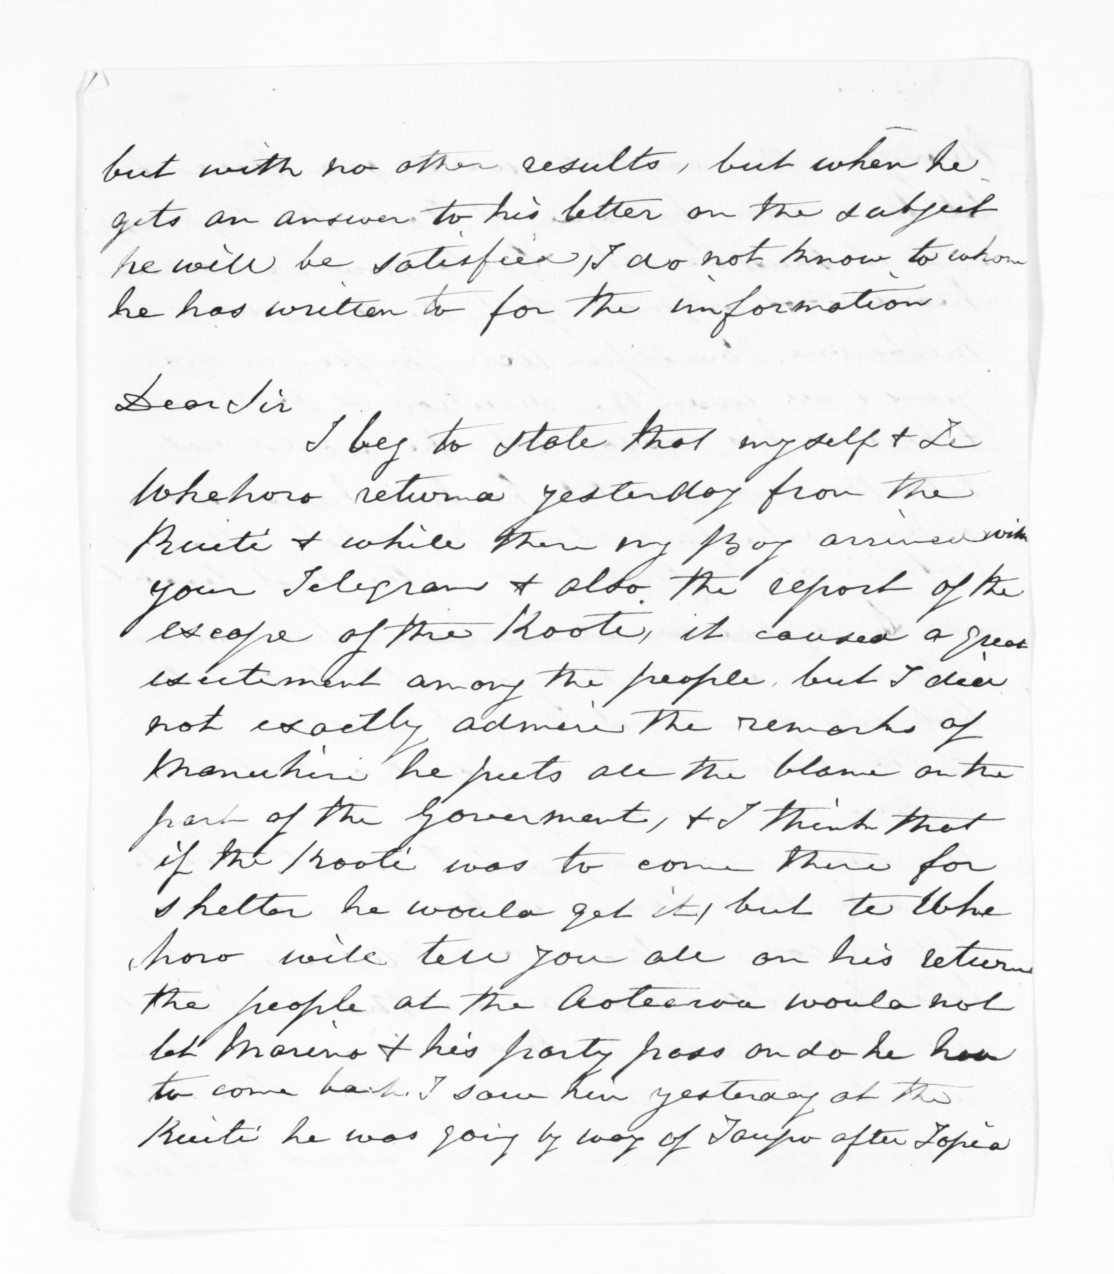 but with no other results, but when he
gets an answer to his letter on the subject
he will be satisfied, I do not know to whom
he has written to for the information
Dear Sir
I beg to state that myself & Te
Whehoro returnd yesterday from the
Kuiti & while there my Boy arrived with
your Telegram & also the report of the
escape of the Kooti, it caused a great
excitement among the people, but I did
not exactly admire the remarks of
Manuhiri he puts all the blame on the
part of the Goverment, & I think that
if the Kooti was to come there for
shelter he would get it, but te Whe
horo will tell you all on his return
the people at the Aotearoa would not
let Marino & his party pass on so he had
to come back. I saw him yesterday at the
Kuiti he was going by way of Taupo after Topia